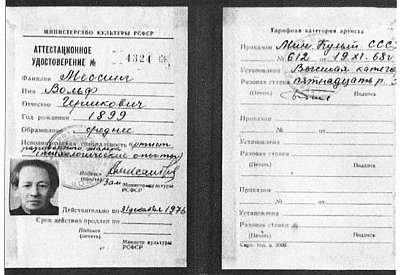 МИНИСТЕРСТВО КУЛЬТУРЫ РСФСР
АТТЕСТАЦИОННОЕ
УДОСТОВЕРЕНИЕ № 4324
Фамилия Мессинг
Имя Вольф
Отчество Гершкович
Год рождения 1899
Образование среднее
Исполнительская специальность артист
разговорного жанра
(психологические опыты)
Подпись
(печать)
Зам. Министр культуры
РСФСР
Действительно по 31 декабря 1976
Срок действия продлен по
Подпись
(печать)
Министр культуры
РСФСР
Тарифная категория артиста
Приказом Мин. Культ. ССС
№ 612 от 19.XI.63г.
Установлена Высшая катего
Разовая ставка пятнадцать р.
(Печать) Подпись
Приказом
№ от
Установлена
Разовая ставка
(Печать) Подпись
Приказом
№ от
Установлена
Разовая ставка
(Печать) Подпись